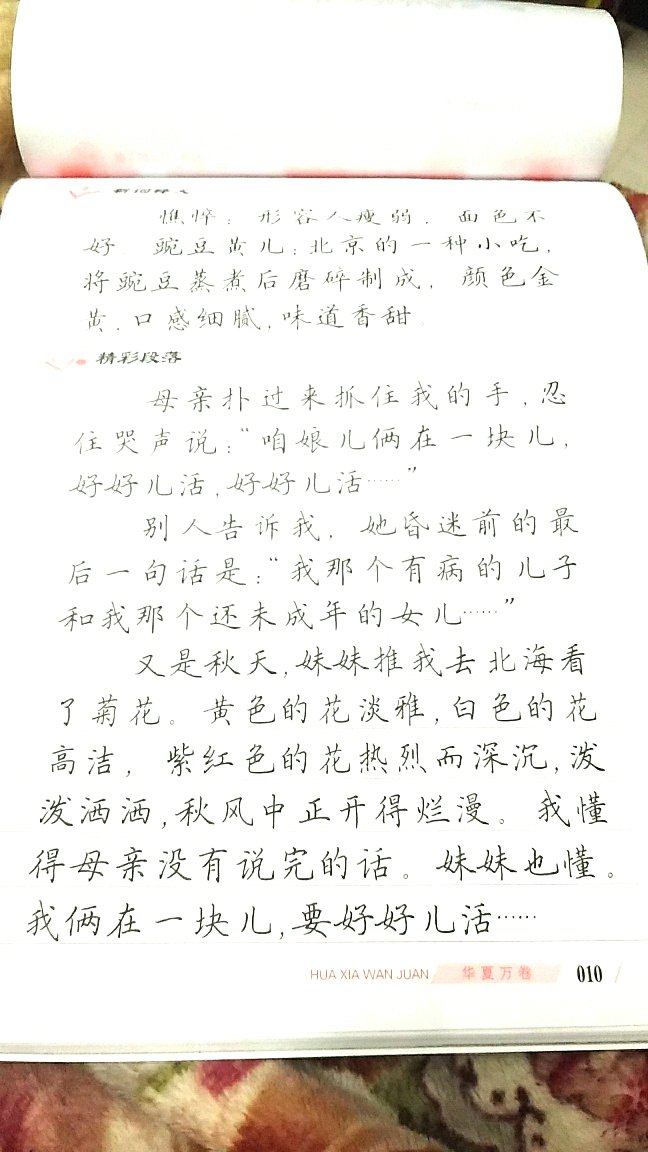 新词释义
憔悴：形容人瘦弱，面色不
好。豌豆黄儿：北京的一种小吃，
将豌豆蒸煮后磨碎制成，颜色金
黄，口感细腻，味道香甜。
精彩段落
母亲扑过来抓住我的手，忍
住哭声说：“咱娘儿俩在一块儿，
好好儿活，好好儿活……”
别人告诉我，她昏迷前的最
后一句话是：“我那个有病的儿子
和我那个还未成年的女儿……”
又是秋天，妹妹推我去北海看
了菊花。黄色的花淡雅，白色的花
高洁，紫红色的花热烈而深沉，泼
泼洒洒，秋风中正开得烂漫。我懂
得母亲没有说完的话。妹妹也懂。
我俩在一块儿，要好好儿活……
HUA XIA WAN JUAN 华夏万卷 010